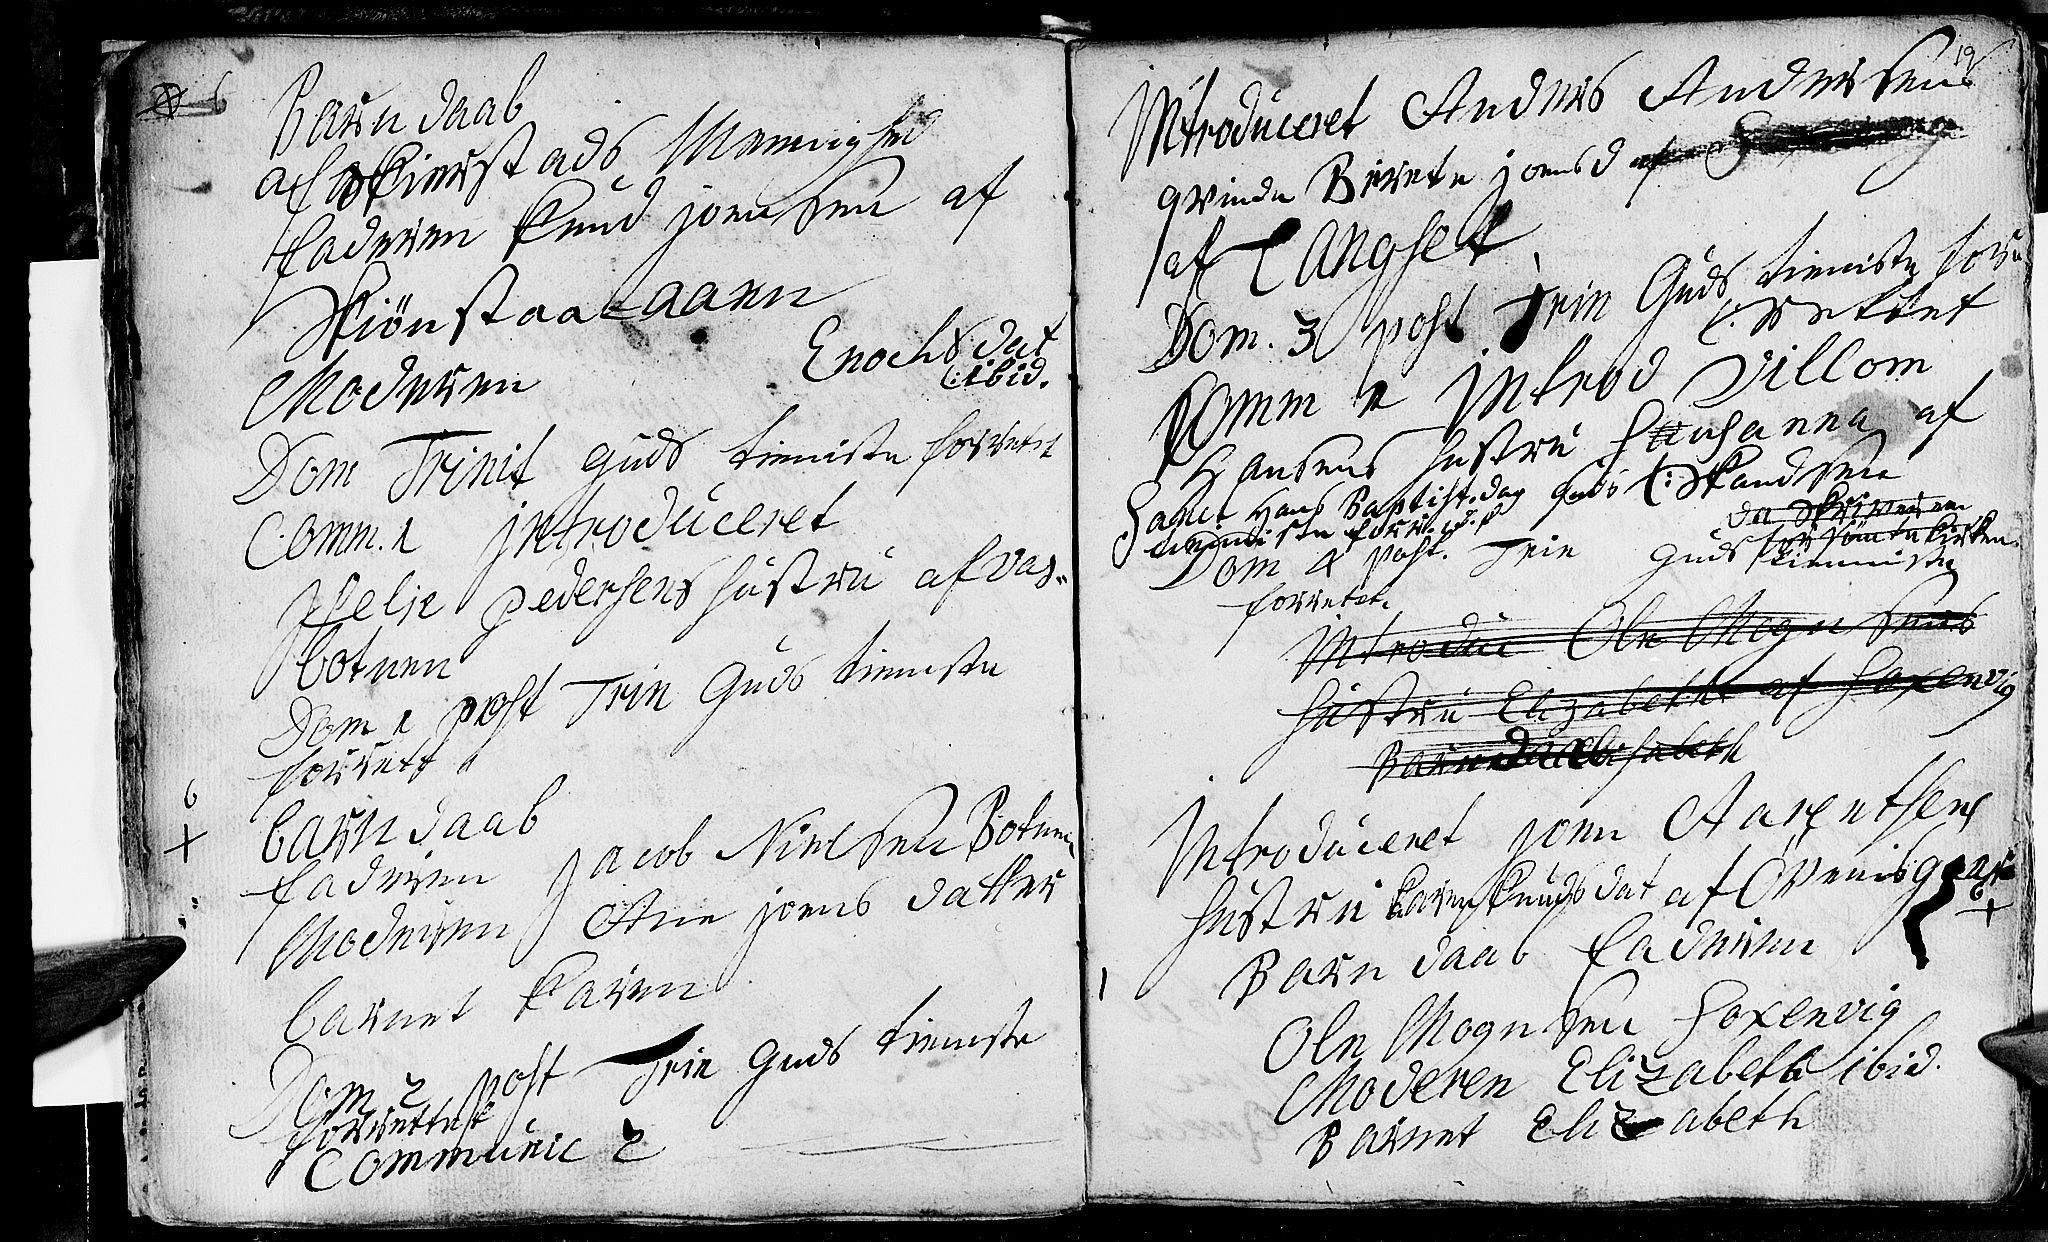 Barn daab
af Skierstads Menighed
faderen Knud joensen af
Skiönstaa aaen
Moderen Enochs dat
ibid.
Dom Trinit Guds tieniste forrettet
Comm. 1 jntroduceret
Helje pedersens hustru af Vas-
botnen
Dom 1 post Trin Guds tieniste
forrett
6
barn daab
faderen Jacob Nielsen Botnen
Moderen Ane joens datter
barnet Karen
Dom 2 post Trin Guds tieniste
forrettet
Communic 2
19
Jntroduceret Anders Andersens
qvinde Berete joensd af
af Langset
Dom. 3 post Trin Guds tieniste forr
Comm 1 Introd Villom
Hansens hustru Susanna af
Sanct Hans Baptist. dag Guds
tieniste forr.
Dom 4 post. Trin Guds tieniste
forrettet.
Introduc Ole Mogensens
hustru Elizabeth af Saxenvig
Barn daab
Introduceret joen
hustru Karen Knuds dat af
6
Barn daab faderen
Ole Mogensen Saxenvig
Moderen Elizabeth ibid.
Barnet Elizabeth